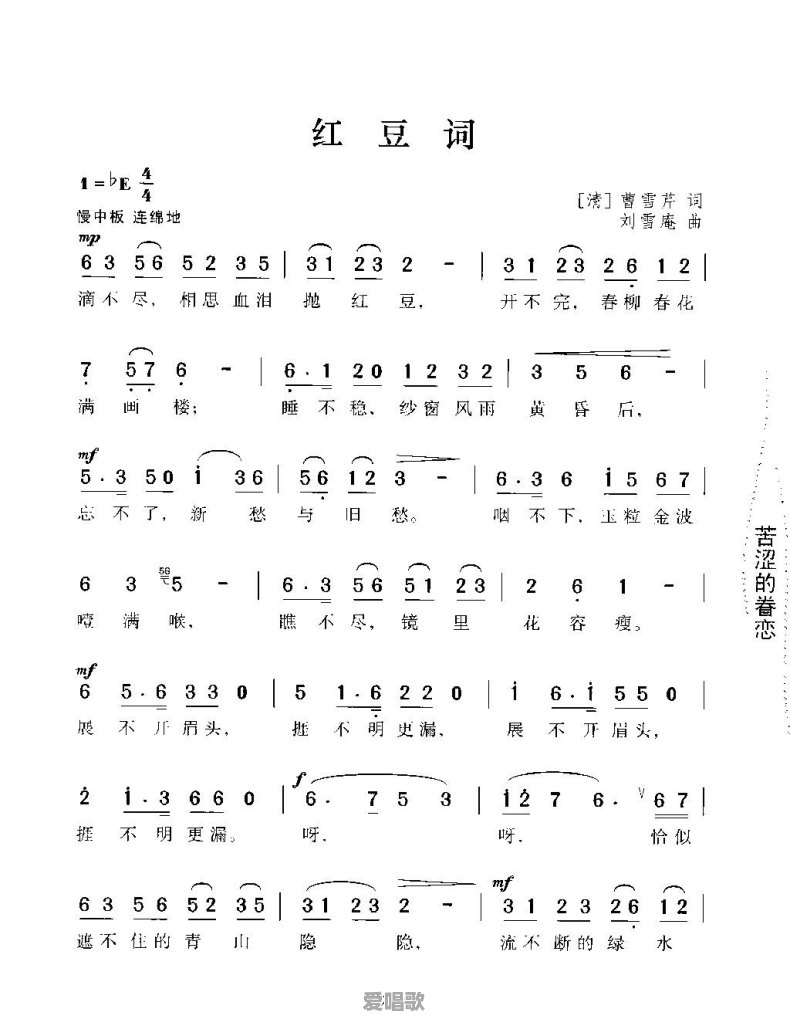 红豆词
1=♭E 4/4
[清]曹雪芹 词
慢中板 连绵地
刘雪庵 曲
mp
6 3 5 6 5 2 3 5 | 3 1 2 3 2 - | 3 1 2 3 2 6 1 2 |
滴不尽,相思血泪 抛红豆, 开不完,春柳春花
7 5 7 6 - | 6·1 2 0 1 2 3 2 | 3 5 6 - |
满画楼; 睡不稳,纱窗风雨 黄昏后,
mf
5·3 5 0 i 3 6 | 5 6 1 2 3 - | 6·3 6 i 5 6 7 |
忘不了,新愁 与旧愁。 咽不下,玉粒金波
6 3 56 5 - | 6·3 5 6 5 1 2 3 | 2 6 1 - |
噎满喉, 瞧不尽,镜里 花容瘦。
mf
6 5·6 3 3 0 | 5 1·6 2 2 0 | i 6·i 5 5 0 |
展不开眉头, 捱不明更漏, 展不开眉头,
2 i·3 6 6 0 | f 6· 7 5 3 | i 2 7 6· V 6 7 |
捱不明更漏。 呀, 呀, 恰似
mf
6 3 5 6 5 2 3 5 | 3 1 2 3 2 - | 3 1 2 3 2 6 1 2 |
遮不住的青山 隐隐, 流不断的绿水
苦涩的眷恋
爱唱歌